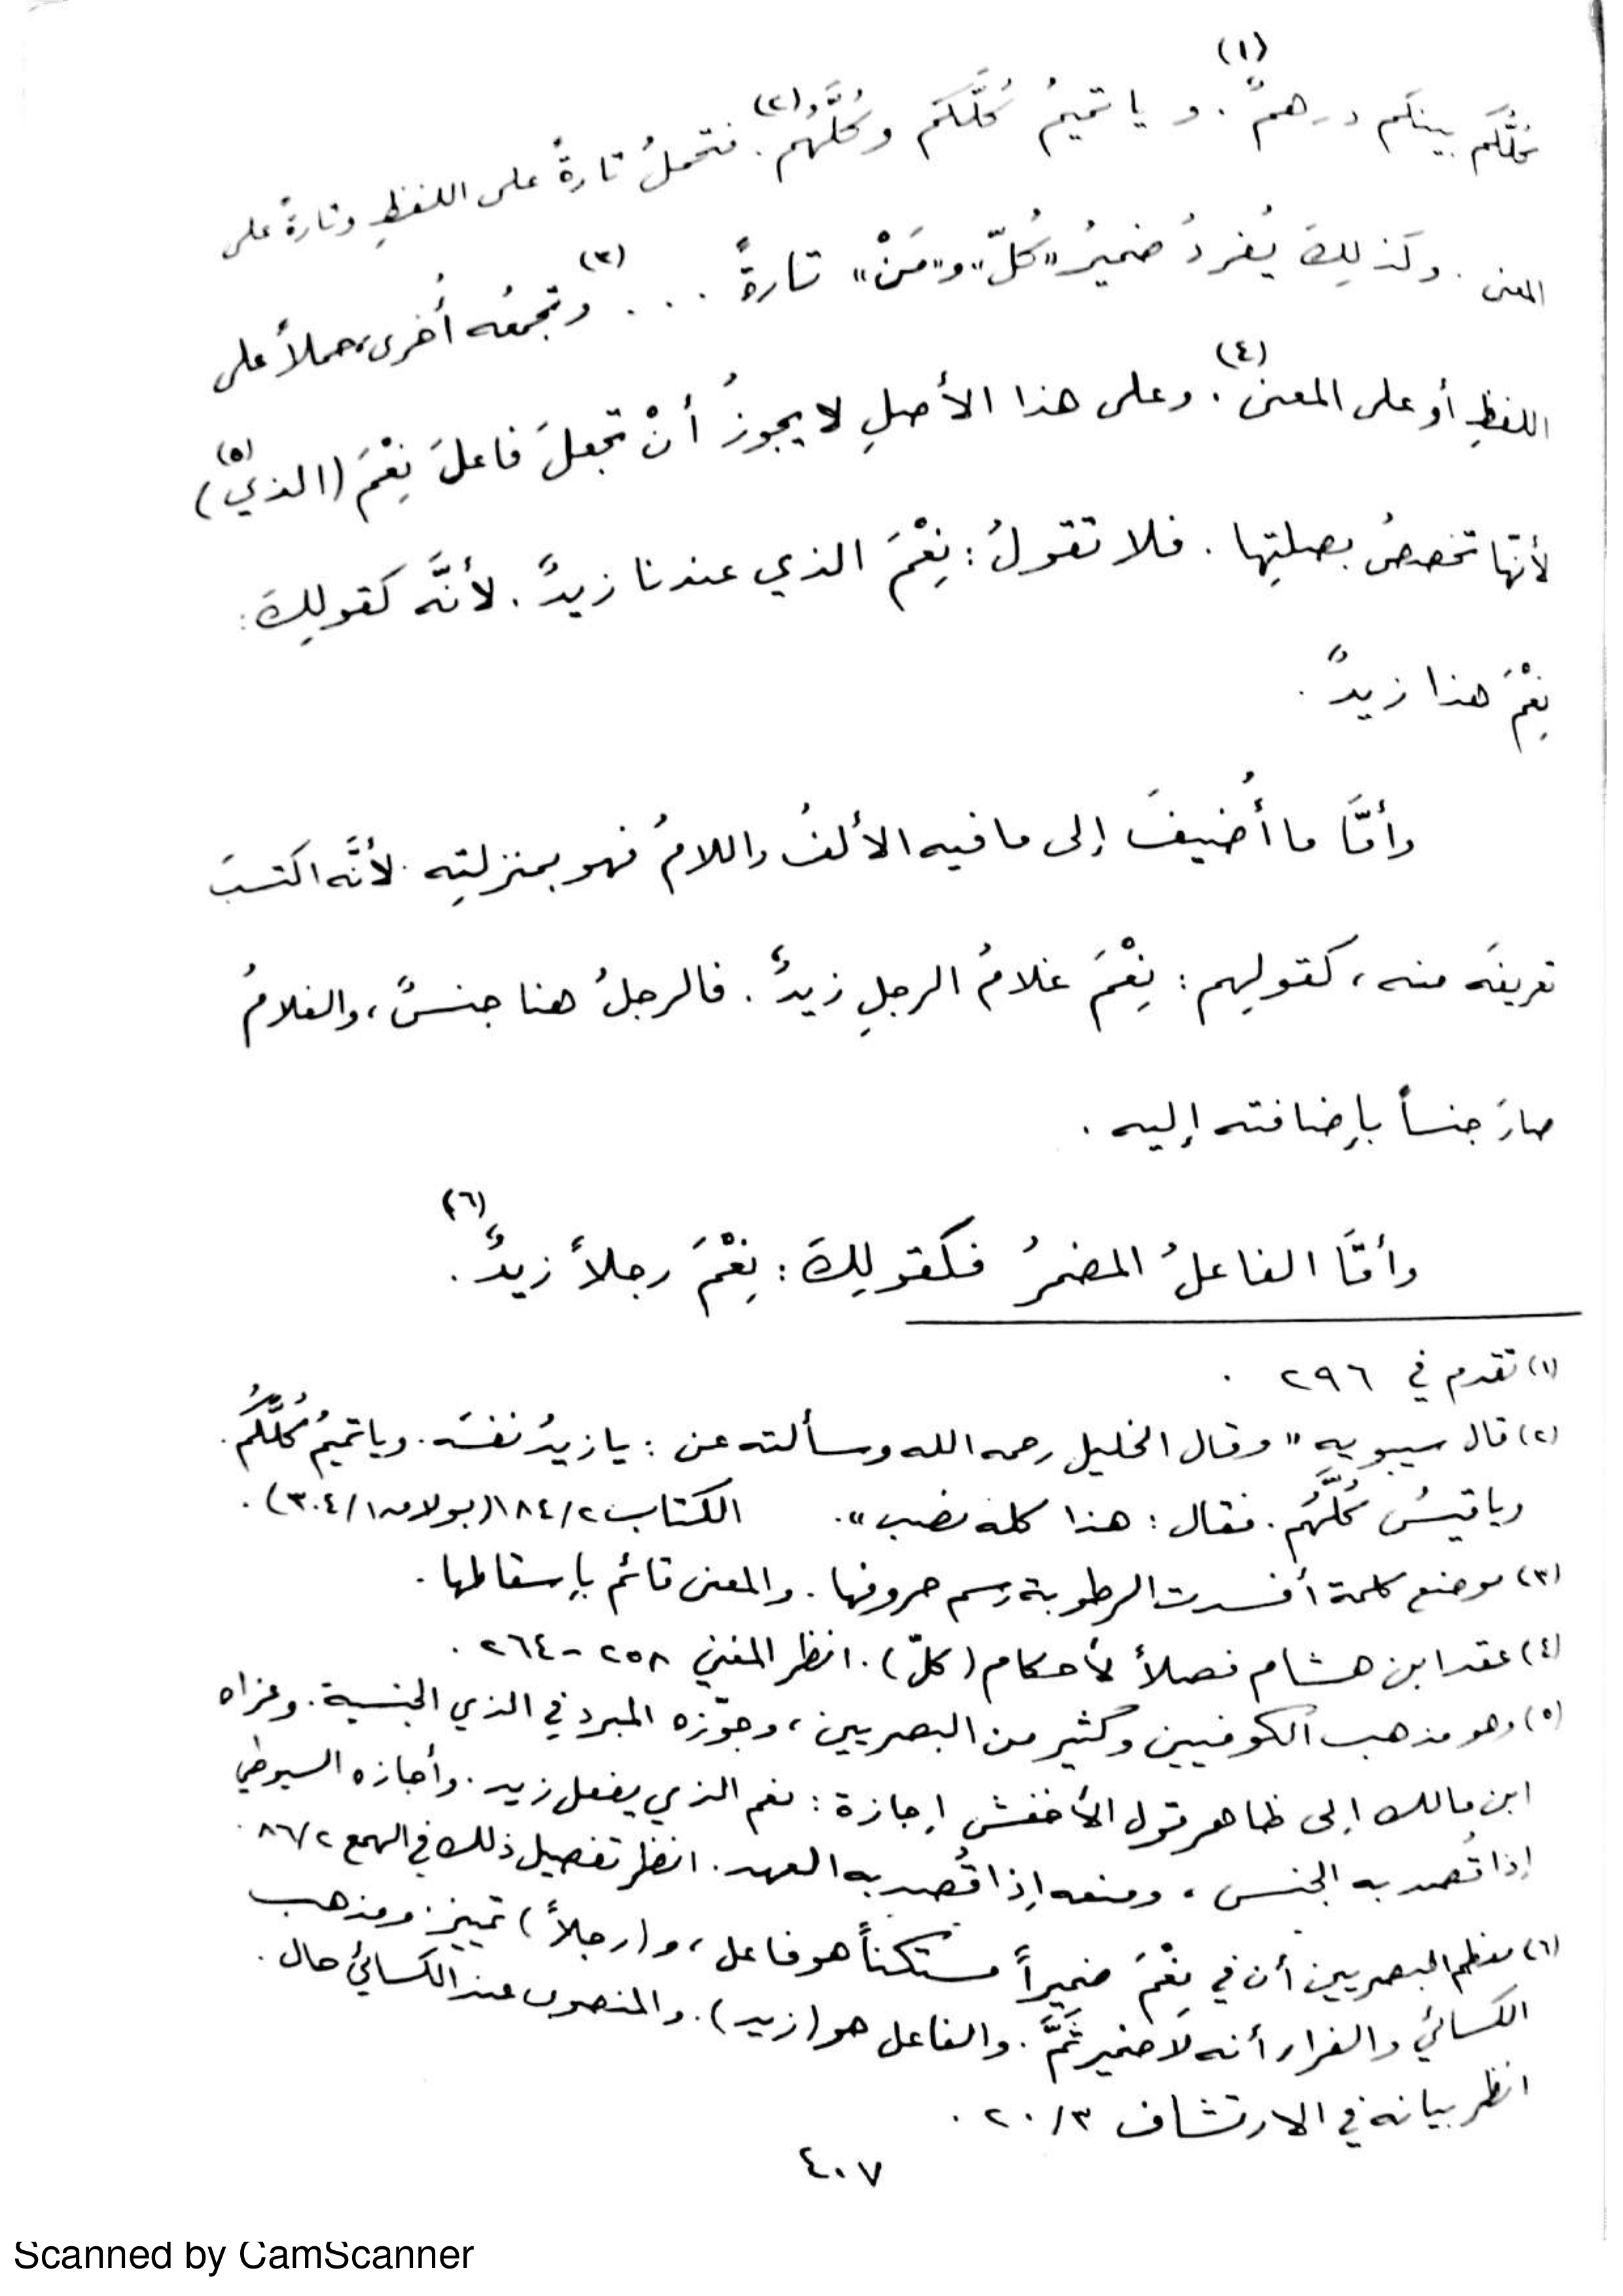 كُلُّكم بينكم درهمٌ (١). و يا تميمُ كُلَّكم وكُلَّهُم (٢). فتحملُ تارةً على اللفظِ وتارةً على
المعنى. وكذلِكَ يُفردُ ضميرُ "كُلّ" و"مَنْ" تارةً . . . (٣) وتجمعُه أُخرى، حملاً على
اللفظِ أو على المعنى (٤). وعلى هذا الأصلِ لا يجوزُ أنْ تجعلَ فاعلَ نِعْمَ (الذي) (٥)
لأنّها تخصصُ بصلتِها. فلا تقولُ: نِعْمَ الذي عندنا زيدٌ. لأنَّه كقولِكَ:
نِعْمَ هذا زيدٌ.
وأمَّا ما أُضيفَ إلى ما فيه الألفُ واللامُ فهو بمنزلتِه. لأنَّه اكتسبَ
تعريفَه منه، كقولِهم: نِعْمَ غلامُ الرجلِ زيدٌ. فالرجلُ هنا جنسٌ، والغلامُ
صارَ جنساً بإضافته إليه.
وأمَّا الفاعلُ المضمرُ فكقولِكَ: نِعْمَ رجلاً زيدٌ (٦).
(١) تقدم في ٢٩٦.
(٢) قال سيبويه "وقال الخليل رحمه الله وسألته عن: يا زيدُ نفسَه. ويا تميمُ كُلَّكُم.
ويا قيسُ كُلَّهُم. فقال: هذا كله نصب". الكتاب ١٨٤/٢ (بولاق ٣٠٤/١).
(٣) موضع كلمة أفسدت الرطوبة رسم حروفها. والمعنى قائم بإسقاطها.
(٤) عقد ابن هشام فصلاً لأحكام (كلّ). انظر المغني ٢٥٨ - ٢٦٤.
(٥) وهو مذهب الكوفيين وكثير من البصريين، وجوّزه المبرد في الذي الجنسية. وعزاه
ابن مالك إلى ظاهر قول الأخفش إجازة: نعم الذي يفعل زيد. وأجازه السيوطي
إذا قُصد به الجنس، ومنعه إذا قُصد به العهد. انظر تفصيل ذلك في الهمع ٨٦/٢.
(٦) معظم البصريين أن في نِعْمَ ضميراً مستكناً هو فاعل، و(رجلاً) تمييز. ومذهب
الكسائي والفراء أنه لا ضمير ثَمَّ. والفاعل هو (زيد). والمنصوب عند الكسائي حال.
انظر بيانه في الارتشاف ٢٠/٣.
٤٠٧
Scanned by CamScanner